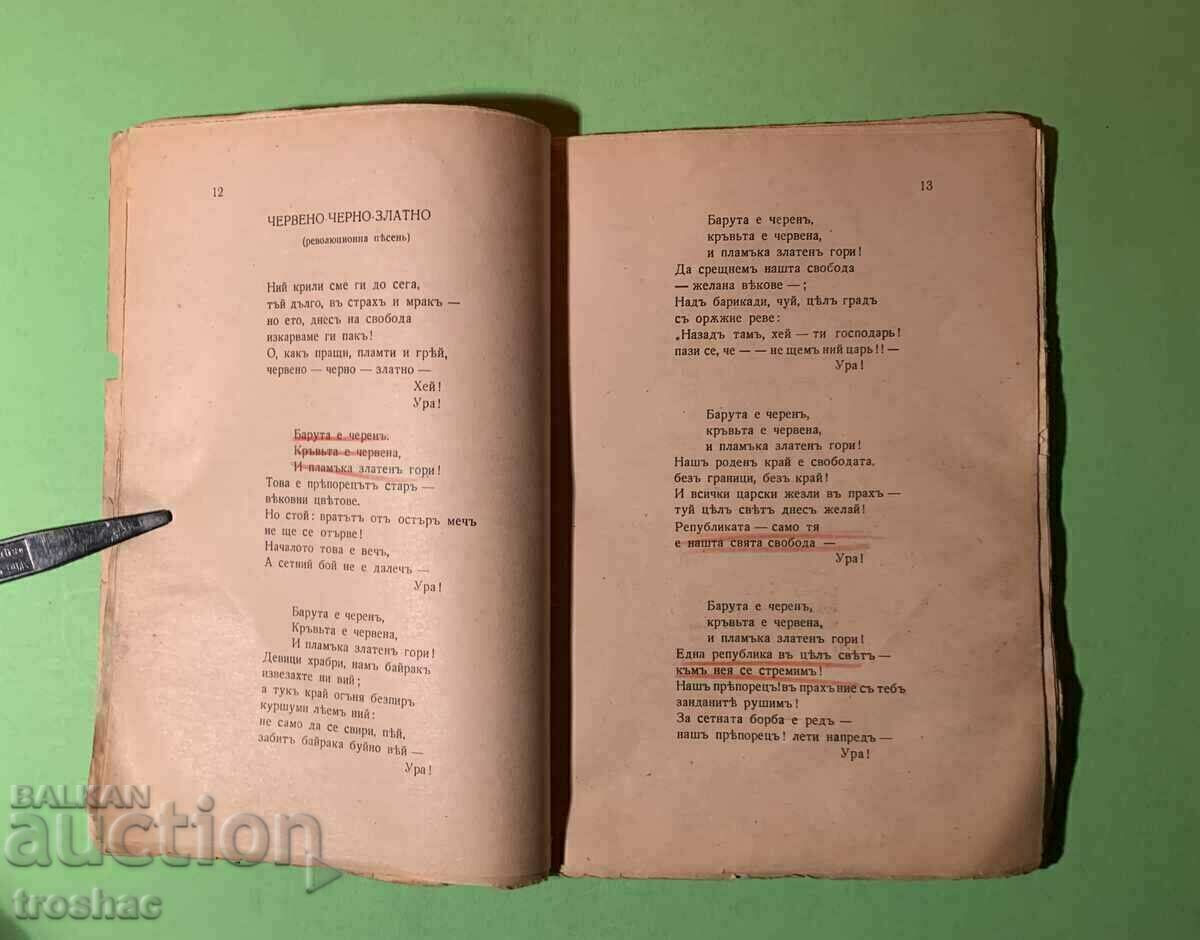 12
ЧЕРВЕНО-ЧЕРНО-ЗЛАТНО
(революционна пѣсень)
Ний крили сме ги до сега,
тъй дълго, въ страхъ и мракъ —
но ето, днесъ на свобода
изкарваме ги пакъ!
О, какъ пращи, пламти и грѣй,
червено — черно — златно —
Хей!
Ура!
Барута е черенъ.
Кръвьта е червена,
И пламъка златенъ гори!
Това е прѣпорецътъ старъ —
вѣковни цвѣтове.
Но стой: врагътъ отъ остъръ мечъ
не ще се отърве!
Началото това е вечъ,
А сетний бой не е далечъ —
Ура!
Барута е черенъ,
Кръвьта е червена,
И пламъка златенъ гори!
Девици храбри, намъ байракъ
извезахте ни вий;
а тукъ край огъня безпиръ
куршуми лѣемъ ний:
не само да се свири, пѣй,
забитъ байрака буйно вѣй —
Ура!
13
Барута е черенъ,
кръвьта е червена,
и пламъка златенъ гори!
Да срещнемъ нашта свобода
— желана вѣкове —;
Надъ барикади, чуй, цѣлъ градъ
съ орѫжие реве:
„Назадъ тамъ, хей — ти господарь!
пази се, че — — не щемъ ний царь!! —
Ура!
Барута е черенъ,
кръвьта е червена,
и пламъка златенъ гори!
Нашъ роденъ край е свободата.
безъ граници, безъ край!
И всички царски жезли въ прахъ —
туй цѣлъ свѣтъ днесъ желай!
Републиката — само тя
е нашта свята свобода —
Ура!
Барута е черенъ,
кръвьта е червена,
и пламъка златенъ гори!
Една република въ цѣлъ свѣтъ —
къмъ нея се стремимъ!
Нашъ прѣпорецъ!въ прахъ ние съ тебъ
занданитѣ рушимъ!
За сетната борба е редъ —
нашъ прѣпорецъ! лети напредъ —
Ура!
BALKAN
auction
troshac